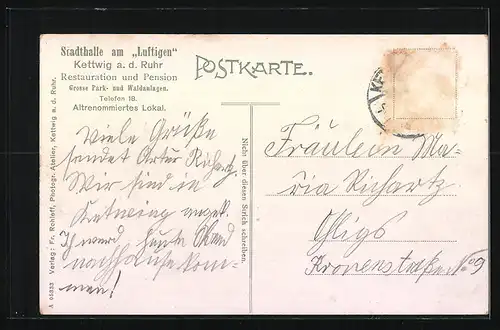 Stadthalle am „Luftigen"
Kettwig a. d. Ruhr
Restauration und Pension
Grosse Park- und Waldanlagen.
Telefon 18.
Altrenommiertes Lokal.
POSTKARTE.
Viele Grüße
sendet Artur Richartz.
Wir sind in
Ketwig angek.
Ich werd heute Abend
nachhause kom-
men!
Nicht über diesen Strich schreiben.
A 05333 Verlag: Fr. Rohleff, Photogr. Atelier, Kettwig a. d. Ruhr.
Fräulein Ma-
ria Richartz
Ohligs
Kronenstraße No 9